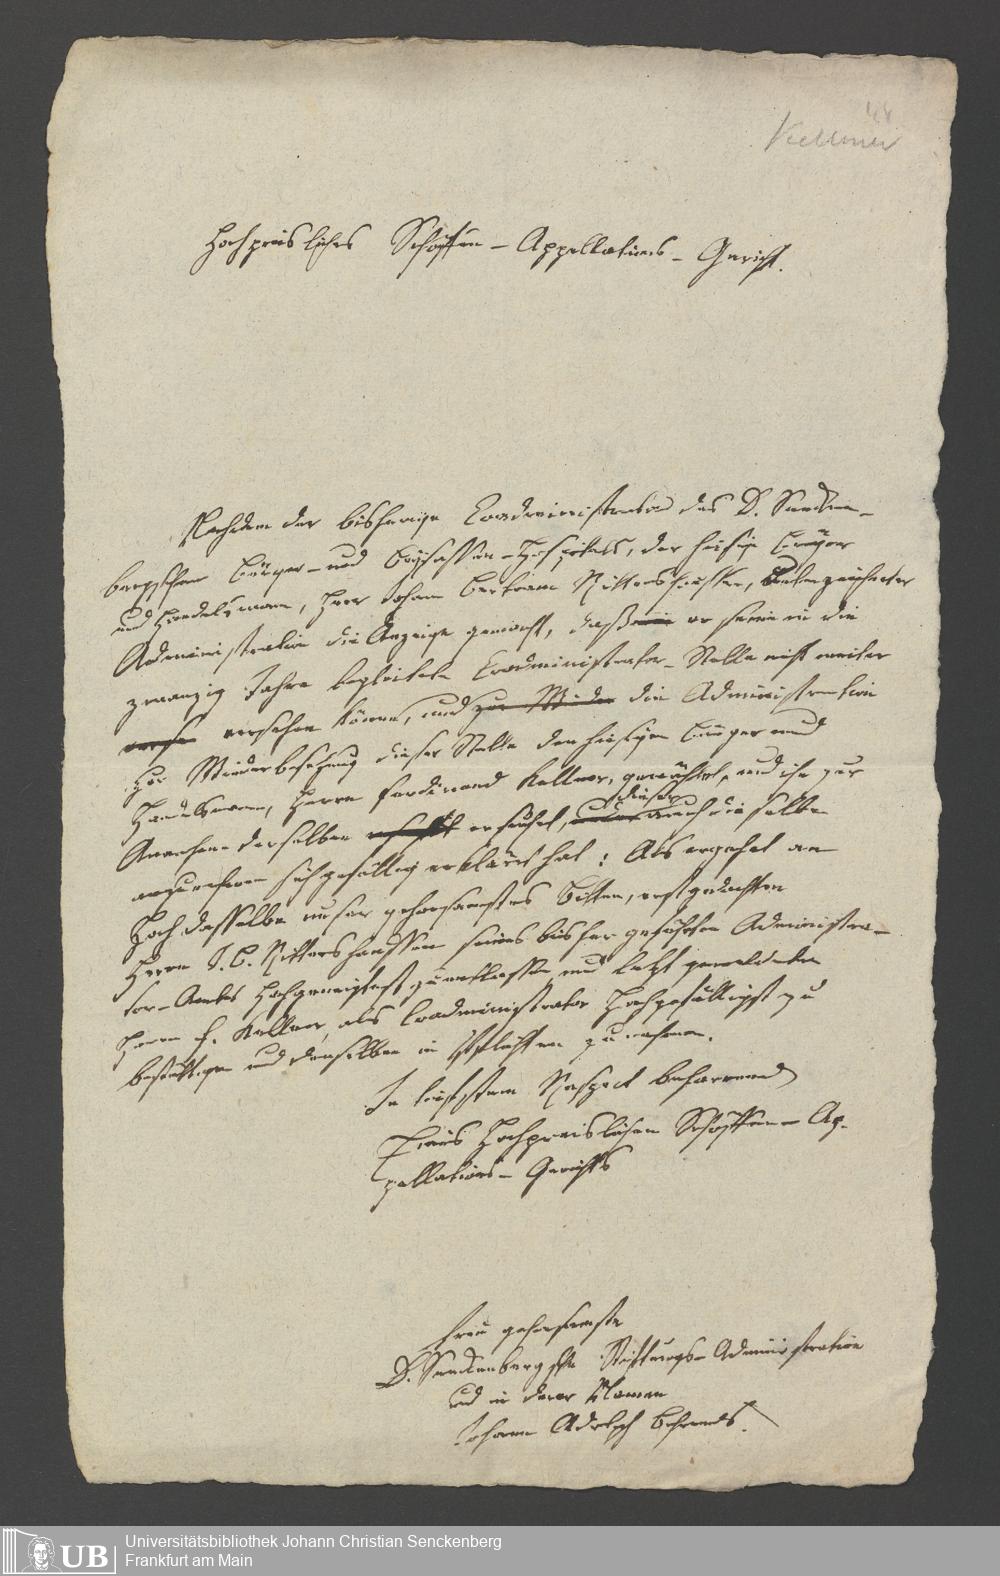 44
Kellner
Hochpreisliches Schöffen-Appellations-Gericht.
Nachdem der bisherige Coadministrator des D. Sencken-
bergischen Bürger- und Beysassen-Hospitals, der hiesige Bürger
und Handelsmann, Herr Johann Bertram Rittershaussen, Unterzeichneter
Administration die Anzeige gemacht, daß er seine in die
zwanzig Jahre begleitete Coadministrator-Stelle nicht weiter
versehen könne, und zur Wieder die Administration
zur Wiederbesetzung dieser Stelle den hiesigen Bürger und
Handelsmann, Herrn Ferdinand Kellner, gewählet, und ihn zur
Annahme derselben ersuchet, dieser auch dieselbe
anzunehmen sich gefällig erkläret hat: Als ergehet an
Hochdasselbe unser gehorsamstes Bitten, erstgedachten
Herrn J. B. Rittershaussen seines bisher geführten Administra-
tor-Amtes Hochgeneigtest zu entlassen und letzt gemeldeten
Herrn F. Kellner, als Coadministrator Hochgefälligst zu
bestättigen und denselben in Pflichten zu nehmen.
In Respect beharrend
Eines Hochpreislichen Schöffen-Ap-
pellations-Gerichts
gehorsamste
D. Senckenbergische Stiftungs-Administration
und in deren Namen
Johann Adolph Behrends.
UB
Universitätsbibliothek Johann Christian Senckenberg
Frankfurt am Main